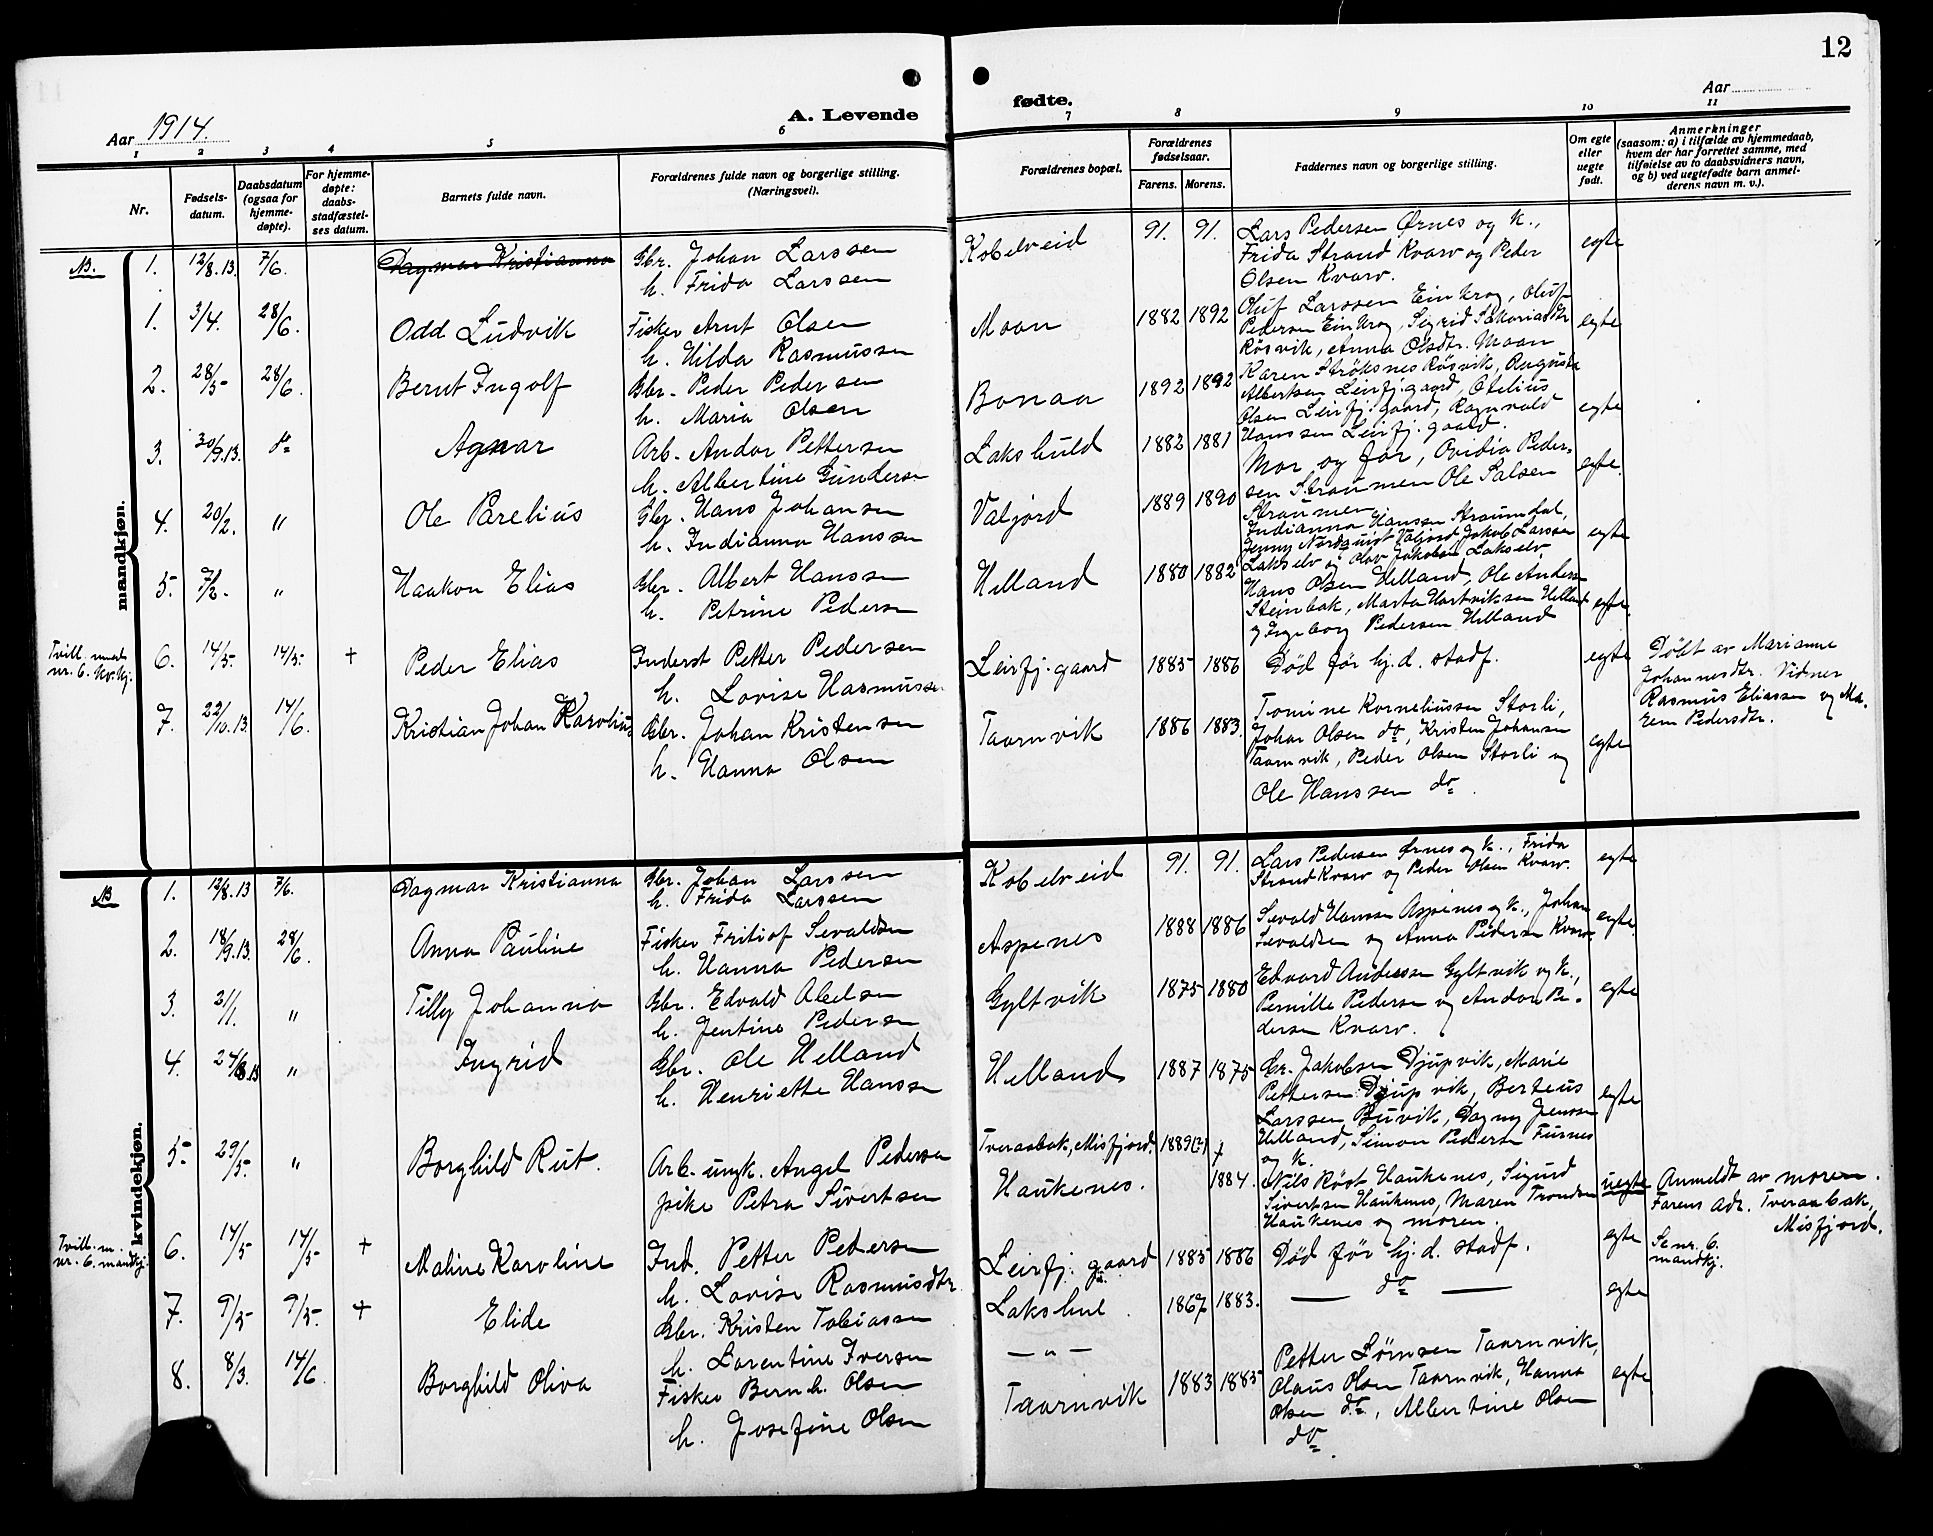 12
Aar 1914.
A. Levende
fødte.
Aar
1
2
3
4
5
6
7
8
9
10
11
Nr.
Fødsels-
datum.
Daabsdatum
(ogsaa for
hjemme-
døpte).
For hjemme-
døpte:
daabs-
stadfæstel-
ses datum.
Barnets fulde navn.
Forældrenes fulde navn og borgerlige stilling.
(Næringsvei).
Forældrenes bopæl.
Forældrenes
fødselsaar.
Farens. Morens.
Faddernes navn og borgerlige stilling.
Om egte
eller
uegte
født.
Anmerkninger
(saasom: a) i tilfælde av hjemmedaab,
hvem der har forrettet samme, med
tilføielse av to daabsvidners navn,
og b) ved uegtefødte barn anmel-
derens navn m. v.).
mandkjøn.
NB. 1. 12/8.13. 7/6. Dagmar Kristianna
Gbr. Johan Larssen
h. Frida Larssen
Kobelveid 91. 91.
Lars Pedersen Ørnes og k.,
Frida Strand Kvarv og Peder
Olsen Kvarv.
egte
1. 3/4. 28/6. Odd Ludvik
Fisker Arnt Olsen
h. Hilda Rasmussen
Moan 1882 1892
Oluf Larssen Einkrog, Oluf
Pedersen Einkrog, Sigrid Sakariasdtr
Røsvik, Anna Olsdtr. Moan
egte
2. 28/5 28/6. Bernt Ingolf
Gbr. Peder Pedersen
h. Maria Olsen
Bonaa 1892 1892
Karen Strøksnes Røsvik, Augusta
Albertsen Leirfj.gaard, Otelius
Olsen Leirfj.gaard, Ragnvald
Hanssen Leirfj.gaard.
egte
3. 30/9.13. do Agnar
Arb. Andor Pettersen
h. Albertine Gundersen
Lakshuld 1882 1881
Mor og far, Ovidia Peder-
sen Straumen Ole Salsen
Straumen.
egte.
4. 20/2. " Ole Parelius
Gbr. Hans Johansen
h. Indianna Hanssen
Valjord 1889 1890
Indianna Hanssen Straumdal,
Jenny Nordquist Valjord, Jakob Larssen
Lakselv og Olav Jakobsen Lakselv.
egte
5. 7/2. " Haakon Elias
Gbr. Albert Hanssen
h. Petrine Pedersen
Helland 1880 1882
Hans Olsen Helland, Ole Andersen
Steinbak, Marta Hartviksen Helland
og Ingeborg Pedersen Helland
egte.
Tvill. med
nr. 6. kv.kj.
6. 14/5. 14/5. + Peder Elias
Inderst Petter Pedersen
h. Lovise Rasmussen
Leirfj.gaard 1885 1886
Død før hj.d. stadf.
egte
Døbt av Marianne
Johannesdtr. Vidner
Rasmus Eliassen og Ma-
ren Pedersdtr.
7. 22/10.13. 14/6. Kristian Johan Karolius
Gbr. Johan Kristensen
h. Hanna Olsen
Taarnvik 1886 1883.
Tomine Korneliussen Storli,
Johan Olsen do, Kristen Johansen
Taarnvik, Peder Olsen Storli og
Ole Hanssen do.
egte
kvindekjøn.
NB 1. 12/8.13 7/6. Dagmar Kristianna
Gbr. Johan Larssen
h. Frida Larssen
Kobelveid 91. 91.
Lars Pedersen Ørnes og k., Frida
Strand Kvarv og Peder Olsen Kvarv.
egte
2. 18/9.13. 28/6. Anna Pauline
Fisker Fritiof Sevaldsen
h. Hanna Pedersen
Aspenes 1888 1886
Sevald Hanssen Aspenes og k., Johan
Sevaldsen og Anna Pedersen Kvarv.
egte.
3. 2/1. " Tilly Johanna
Gbr. Edvald Abelsen
h. Jentine Pedersen
Gyltvik 1875 1880
Edvard Anderssen Gyltvik og k.,
Pernille Pedersen og Andor Pe-
dersen Kvarv.
egte
4. 24/8.13 " Ingrid
Gbr. Ole Helland
h. Henriette Hanssen
Helland 1887 1875
Chr. Jakobsen Djupvik, Marie
Pettersen Djupvik, Berteus
Larssen Buvik, Dagny Jenssen
Helland, Simon Pedersen Furnes
og k.
egte
5. 29/5. " Borghild Rut.
Arb. ungk. Angel Pedersen
pike Petra Sivertsen
Tveraabak, Misfjord. 1889(?)
Haukenes. 1884.
Nils Røst Haukenes, Sigurd
Sivertsen Haukenes, Maren Trondsen
Haukenes og moren.
uegte
Anmeldt av moren.
Farens adr. Tveraabak,
Misfjord.
Tvill. m.
nr. 6. mandkj.
6. 14/5 14/5 + Maline Karoline
Ind. Petter Pedersen
h. Lovise Rasmusdtr
Leirfj.gaard 1885 1886
Død før hj.d. stadf.
egte
Se nr. 6.
mandkj.
7. 9/5 9/5. + Elide
Gbr. Kristen Tobiassen
h. Lorentine Iversen
Lakshul. 1867 1883.
— " —
— do —
egte
8. 8/3. 14/6. Borghild Oliva
Fisker Bernh. Olsen
h. Josefine Olsen
Taarnvik 1883 1885
Petter Sørnsen Taarnvik,
Olaus Olsen Taarnvik, Hanna
Olsen do., Albertine Olsen
do.
egte